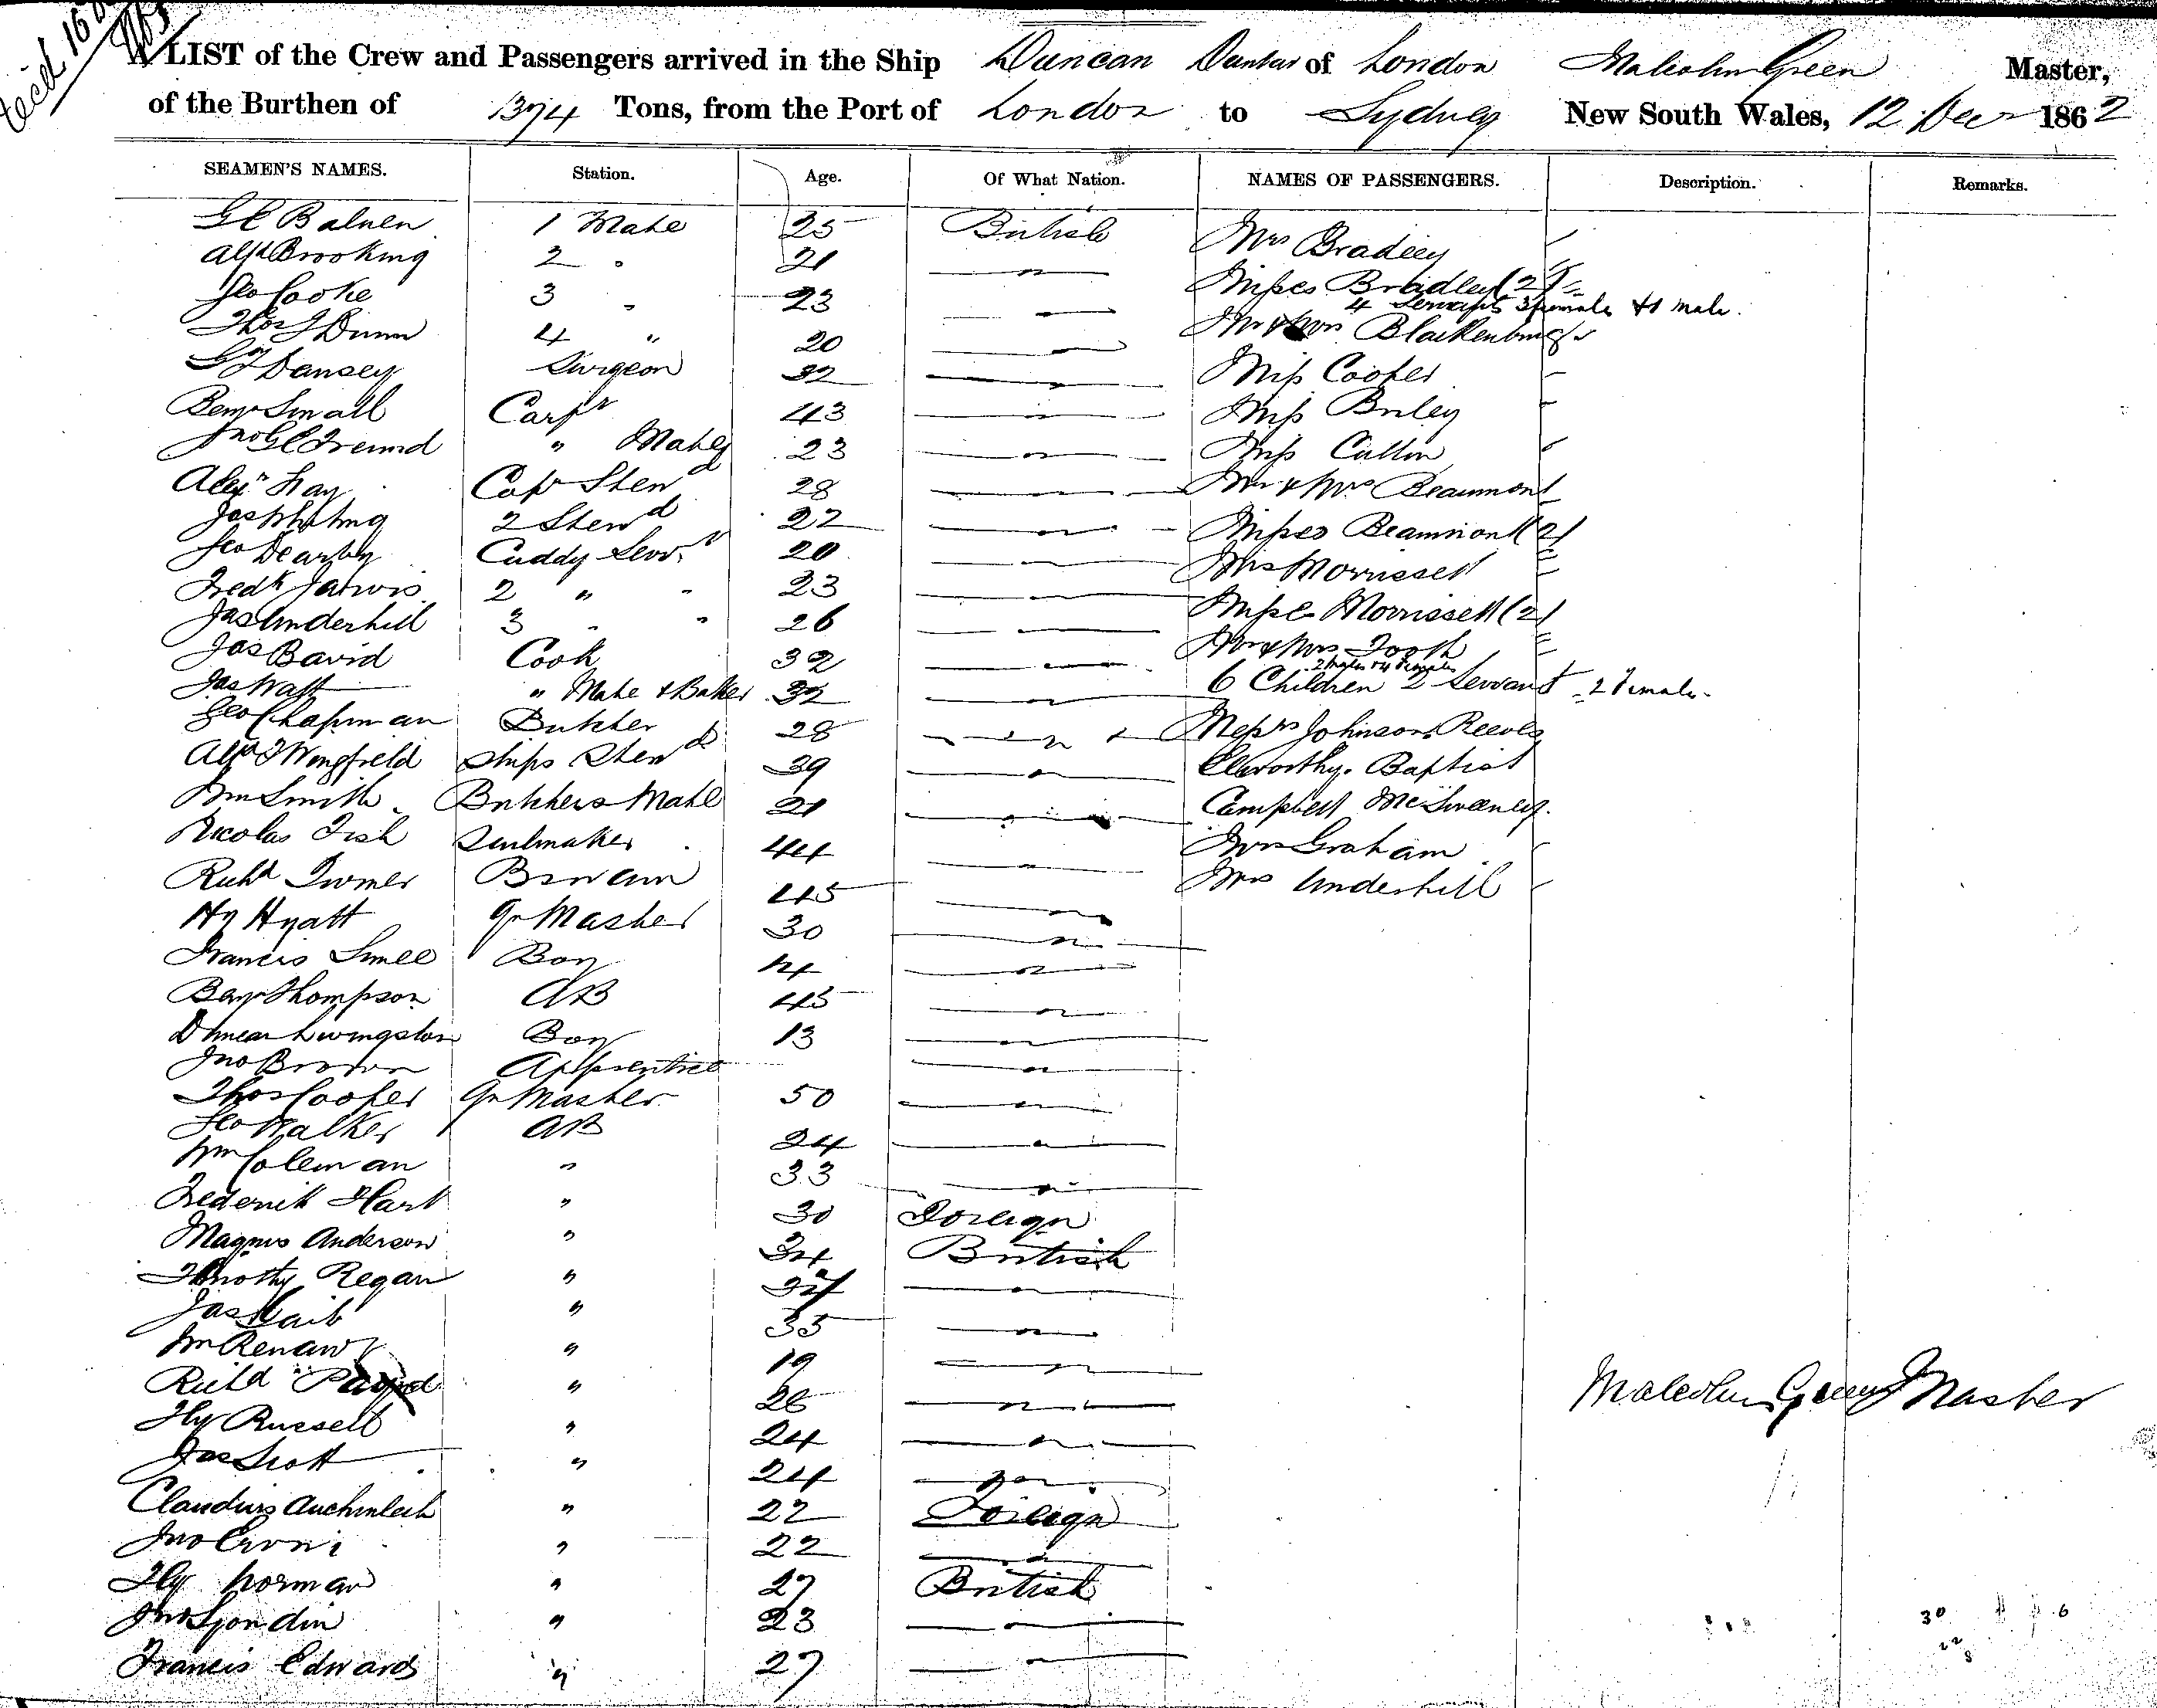 A LIST of the Crew and Passengers arrived in the Ship Duncan Dunbar of London Malcolm Green Master,
of the Burthen of 1374 Tons, from the Port of London to Sydney New South Wales, 12 Decr 1862
SEAMEN'S NAMES. Station. Age. Of What Nation. NAMES OF PASSENGERS. Description. Remarks.
1 Mate 25 British Mrs Bradley
Alfd Brooking 2 " 21 Misses Bradley (2)
4 Servants 3 females & 1 male.
Geo Cooke 3 " 23 Mr & Mrs
Thos J Dunn 4 " 20
Dansey Surgeon 32 Miss Cooper
Benjn Small Carpr 43 Miss Briley
" Mate 23 Miss
Alexr Hay Capt Stewd 28 Mr & Mrs Beaumont
Jas Whiting 2 Stewd 22 Misses Beaumont (2)
Geo Dearby Cuddy Servt 20 Mrs Morrissett
Fredk Jarvis 2 " " 23 Misses Morrissett (2)
Jas Underhill 3 " " 26 Mr & Mrs Tooth
2 Males & 4 Females
Jas David Cook 32 6 Children 2 Servant - 2 Female -
Jas Watt " Mate & Baker 32
Geo Chapman Butcher 28 Messrs Johnson Reeves
Alfd J Wingfield Ships Stewd 39 Elworthy. Baptist
Wm Smith Butchers Mate 21 Campbell McSweeney.
Nicolas Fish Sailmaker 44 Mrs Graham
Richd Turner Bswain 45 Mrs Underhill
Hy Hyatt Qr Master 30
Francis Smee Boy 14
Benjn Thompson AB 45
Duncan Livingston Boy 13
Jno Brown Apprentice
Thos Cooper Qr Master 50
Geo Walker AB 24
Wm Coleman " 33
Frederick Hart " 30 Foreign
Magnus Anderson " 34 British
Timothy Regan "
Jas " 35
Wm Renaw " 19
Richd " 26
Hy Russell " 24
Jas Scott " 24
Claudius Auchinleck " 22 Foreign
Jno " 22
Hy Norman " 27 British
Jno " 23
Francis Edwards " 27
Malcolm Green Master